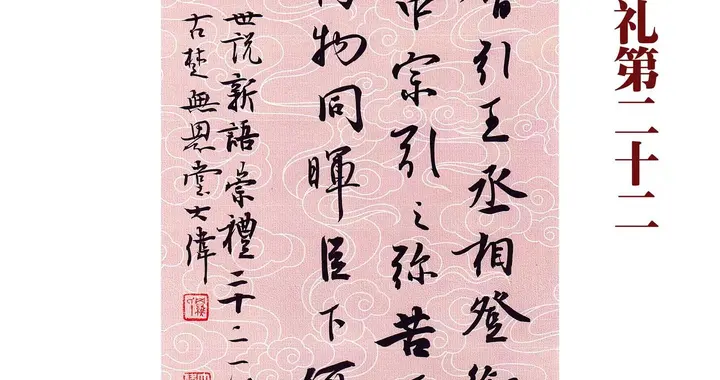 礼第二十二
引王丞相登
宗引之弥苦
物同暉臣下
世説新語崇禮二十二
古楚無恩堂大偉